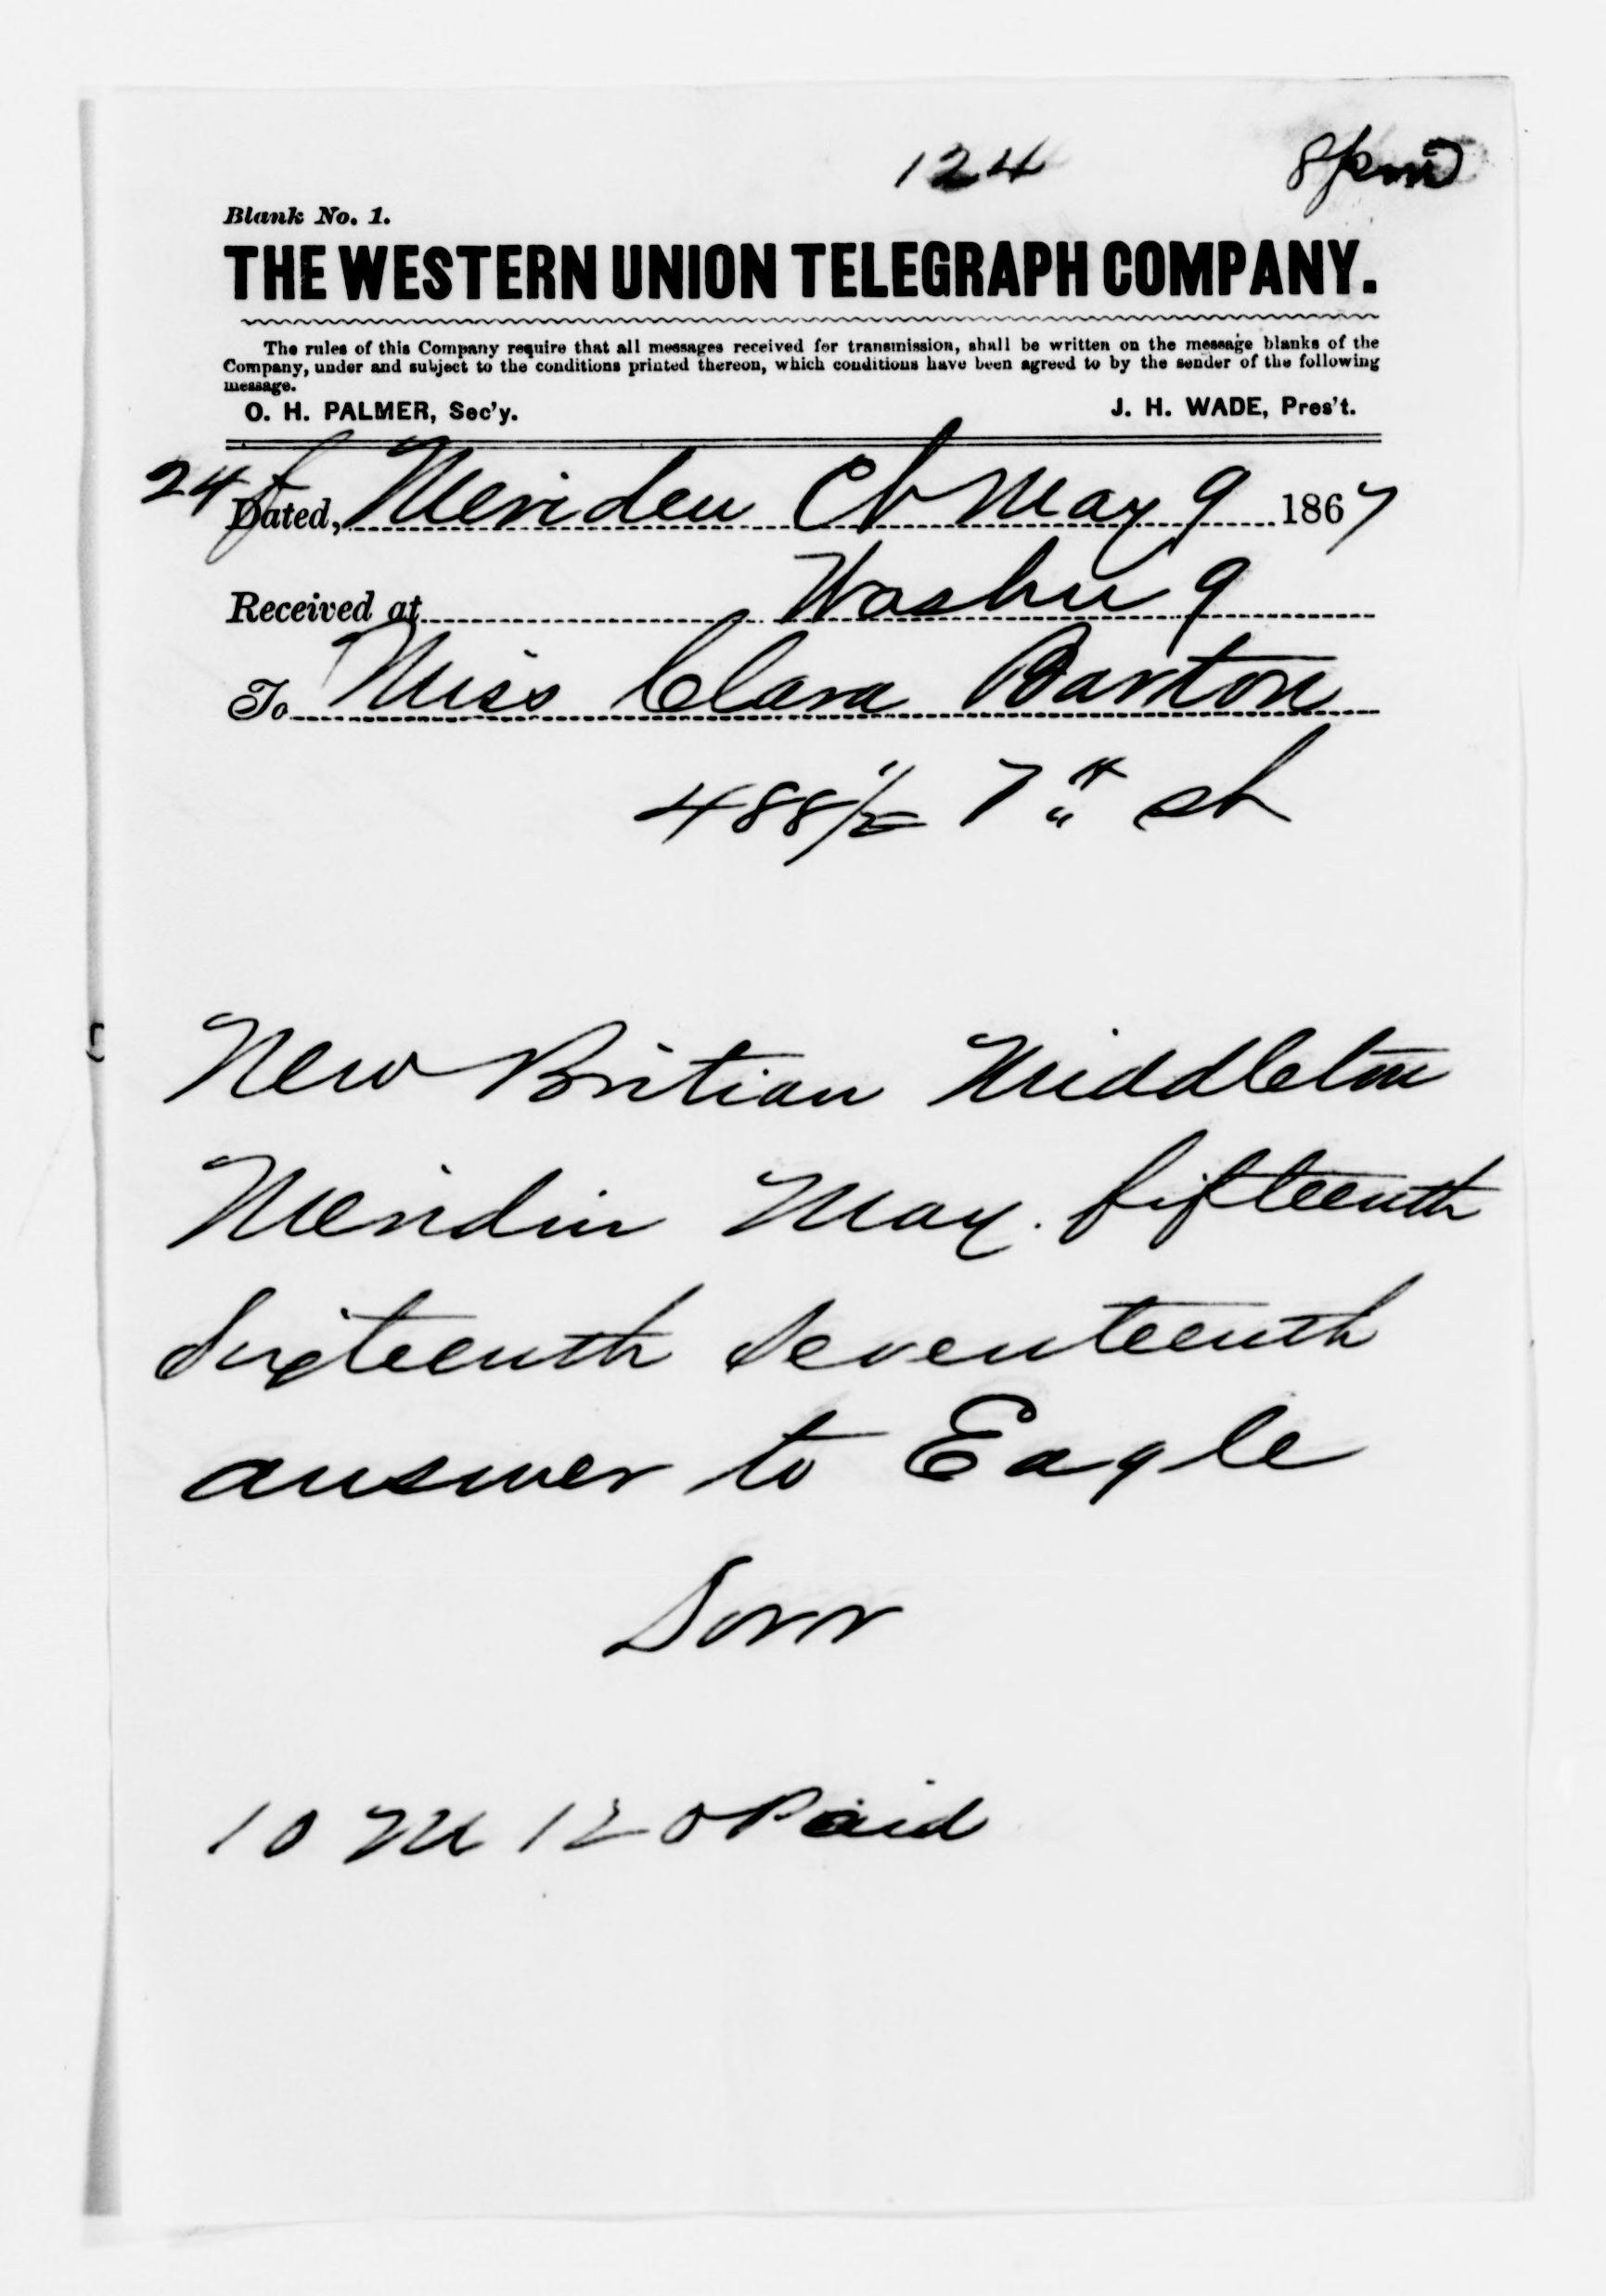 124 8 pm
Blank No. 1.
THE WESTERN UNION TELEGRAPH COMPANY.
The rules of this Company require that all messages received for transmission, shall be written on the message blanks of the
Company, under and subject to the conditions printed thereon, which conditions have been agreed to by the sender of the following
message.
O. H. PALMER, Sec'y. J. H. WADE, Pres't.
24 Dated, Meriden Ct May 9 1867
Received at Washn 9
To Miss Clara Barton
488 1/2 7th st
New Britian Middleton
Meridin May. fifteenth
Sixteenth Seventeenth
answer to Eagle
Dorr
10 M 120 Paid